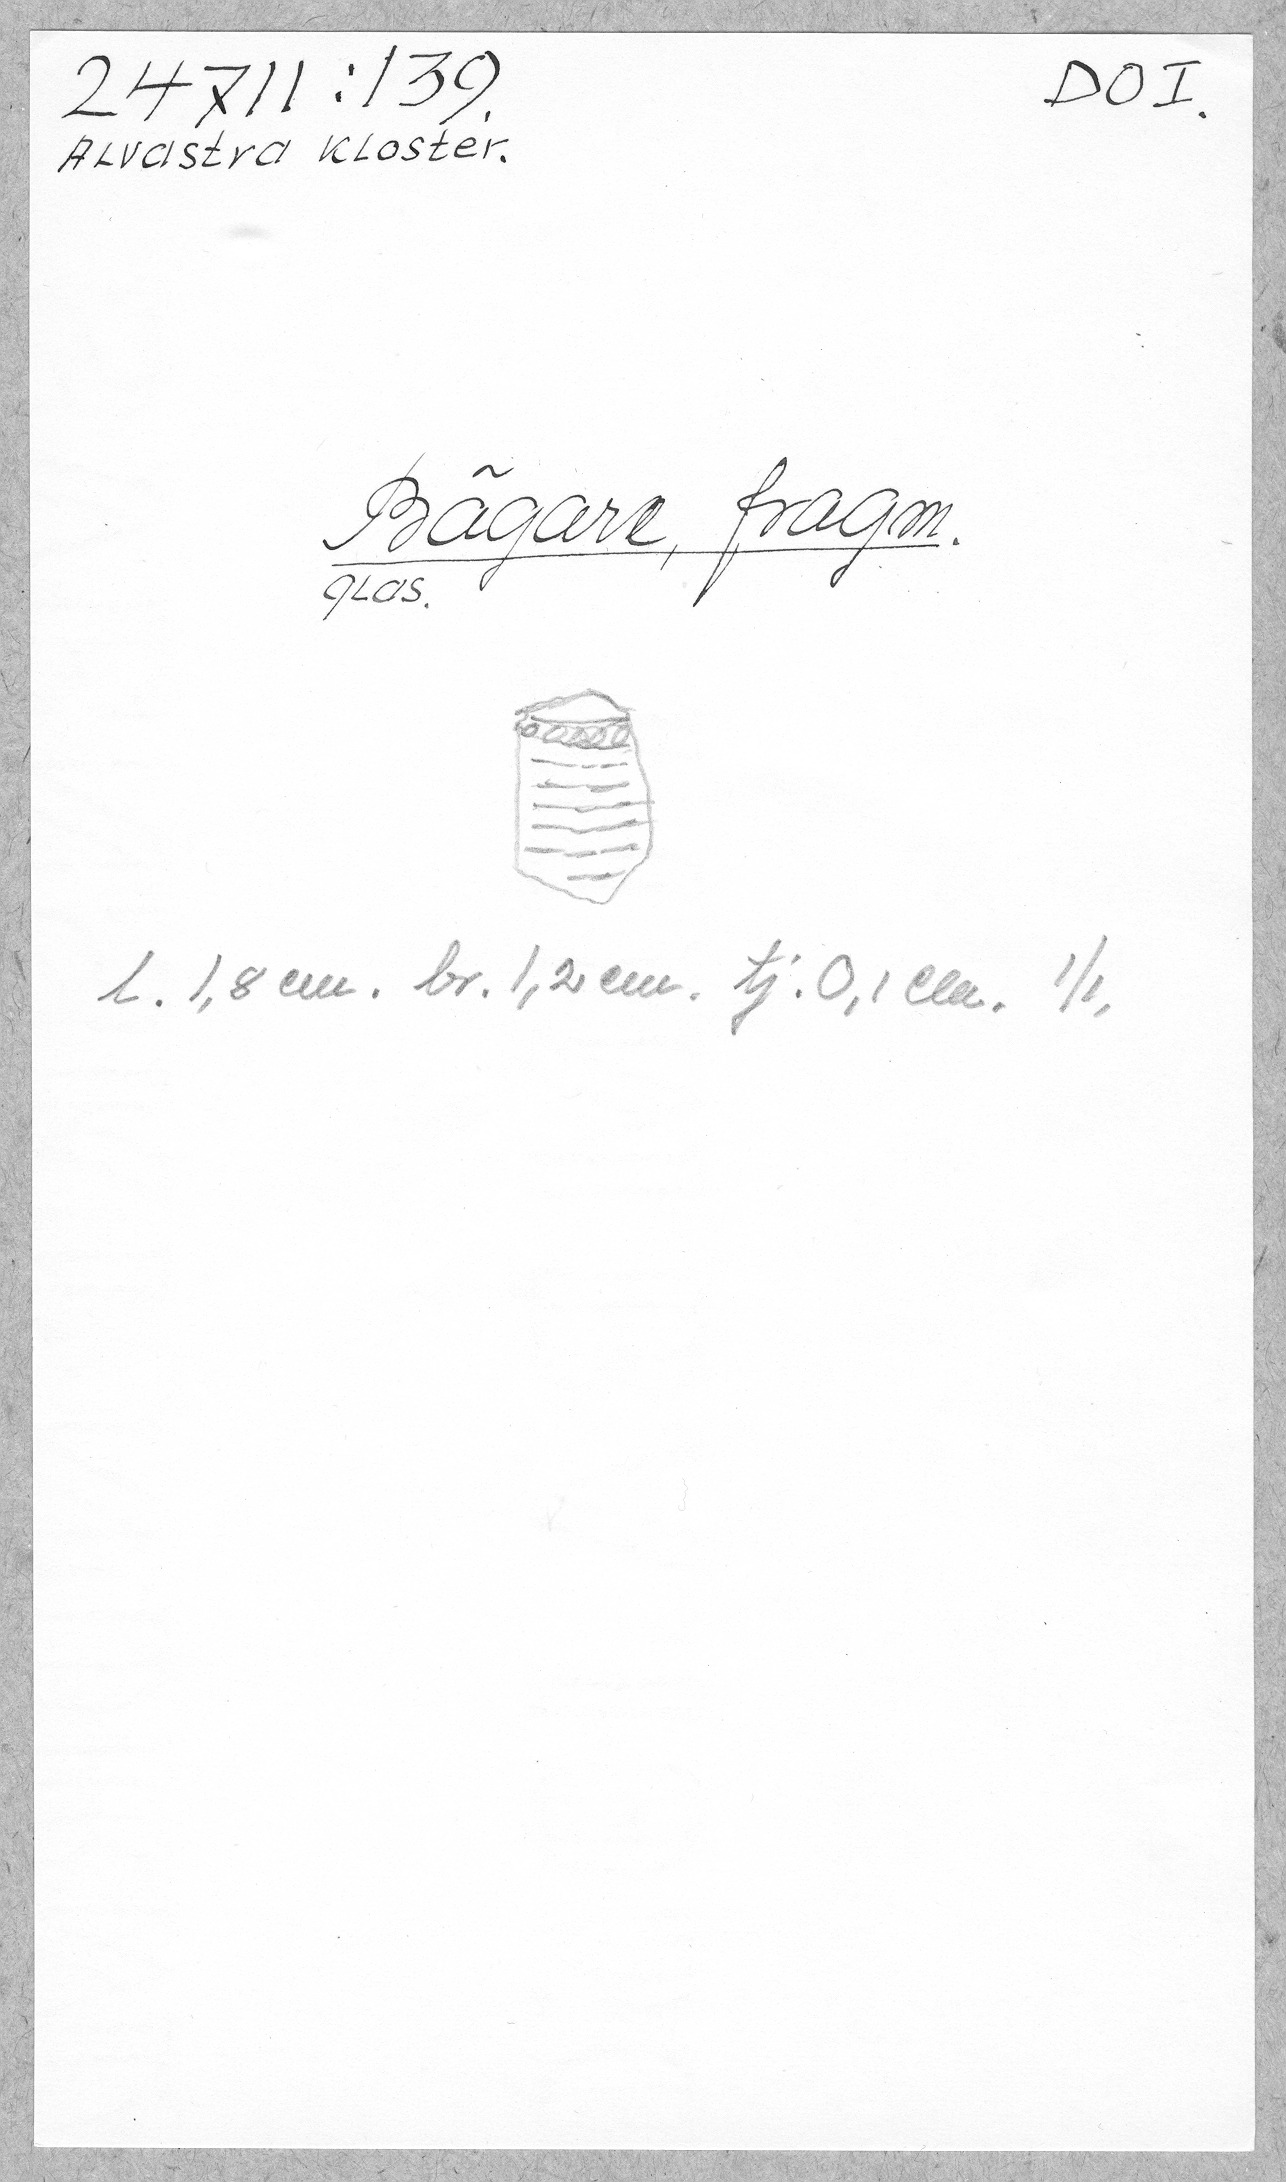 24711:139.
DOI.
Alvastra Kloster.
Bãgare, fragm.
glas.
L. 1,8 cm. br. 1,2 cm. tj. 0,1 cm. 1/1,